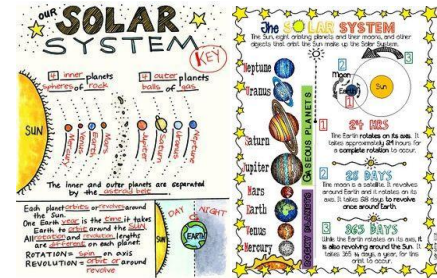 OUR SOLAR
SYSTEM
KEY
4 inner planets
spheres of rock
4 outer planets
balls of gas
SUN
Mercury
Venus
Earth
Mars
Jupiter
Saturn
Uranus
Neptune
The inner and outer planets are separated
by the asteroid belt
Each planet orbits or revolves around
the Sun.
One Earth year is the time it takes
Earth to orbit around the SUN.
All rotation and revolution lengths
are different on each planet.
ROTATION= spin on axis
REVOLUTION= orbit or around
revolve
SUN
DAY
NIGHT
EARTH
The SOLAR SYSTEM
The Sun, eight orbiting planets and their moons, and other
objects that orbit the Sun make up the Solar System.
Neptune
Uranus
Saturn
Jupiter
Mars
Earth
Venus
Mercury
GASEOUS PLANETS
ROCKY PLANETS
3
2
Moon
Earth
Sun
1
1
24 HRS
The Earth rotates on its axis. It
takes approximately 24 hours for
a complete rotation to occur.
2
28 DAYS
The moon is a satellite. It revolves
around Earth and it rotates on its
axis. It takes 28 days to revolve
once around Earth.
3
365 DAYS
While the Earth rotates on its axis, it
is also revolving around the Sun. It
takes 365 ¼ days, a year, for this
to occur.